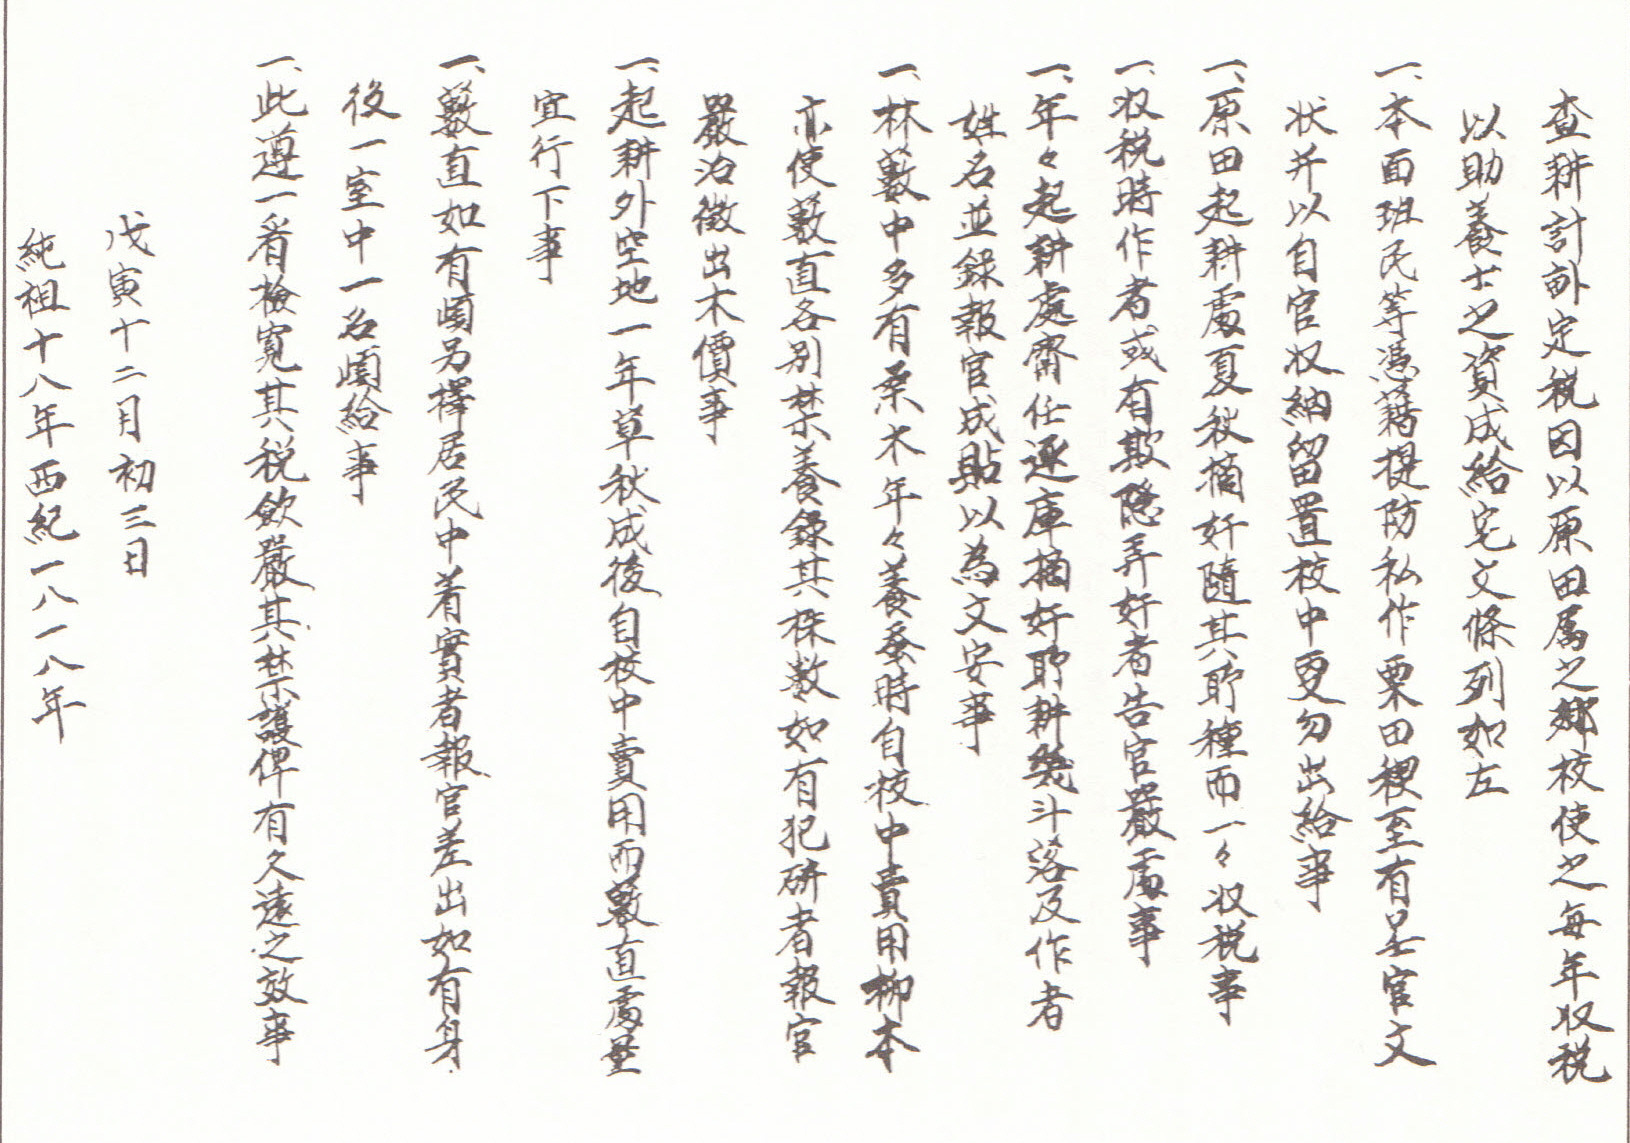 查耕計畝定税因以原田屬之鄉校使之每年収税
以助養士之資成給完文條列如左
一、本面班民等憑藉提防私作栗田稞至有呈官文
状并以自官収納留置校中更勿出給事
一、原田起耕處夏秋摘奸隨其所種而一々収税事
一、収税時作者或有欺隱弄奸者告官嚴處事
一、年々起耕處齋任逐庫摘奸所耕幾斗落及作者
姓名並錄報官成貼以為文安事
一、林藪中多有桑木年々養蚕時自校中賣用柳木
亦使藪直各別禁養錄其株数如有犯斫者報官
嚴治徴出木價事
一、起耕外空地一年草秋成後自校中賣用而藪直處量
宜行下事
一、藪直如有頉另擇居民中着實者報官差出如有身
後一室中一名頉給事
一、此遵一看檢寬其税斂嚴其禁護俾有久遠之效事
戊寅十二月初三日
純祖十八年西紀一八一八年